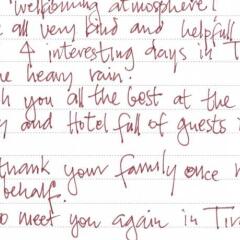 wellbming atmosphere!
all very kind and helpfull
4 interesting days in T
e heavy rain.
h you all the best at the
y and Hotel full of guests
thank your family once
behalf.
o meet you again in Tira